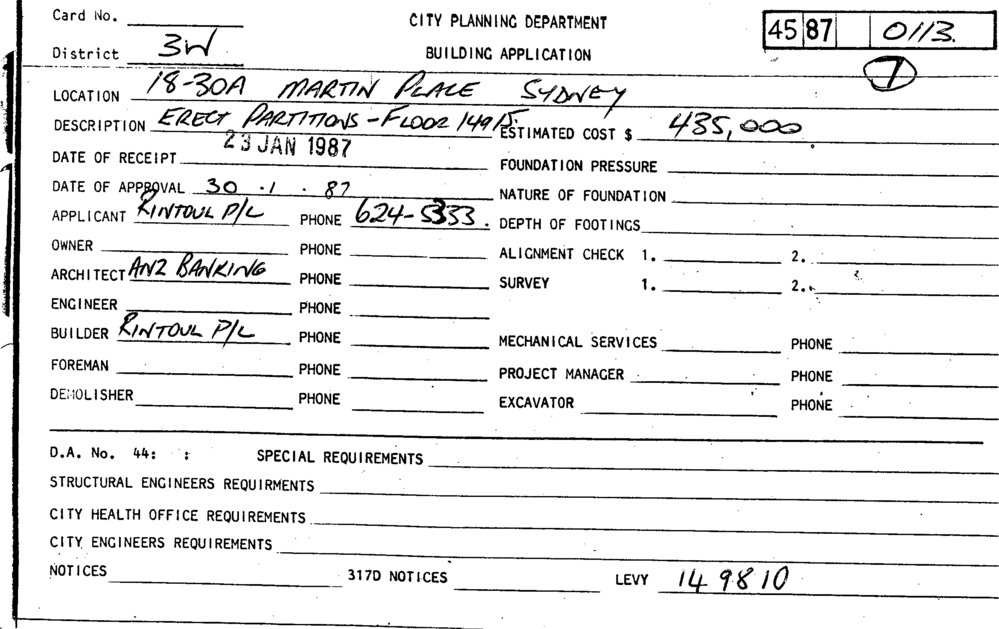 Card No. CITY PLANNING DEPARTMENT 45 87 0113.
District 3W BUILDING APPLICATION 1
LOCATION 18-30A MARTIN PLACE SYDNEY
DESCRIPTION ERECT PARTITIONS - FLOOR 14&15. ESTIMATED COST $ 435,000
DATE OF RECEIPT 23 JAN 1987 FOUNDATION PRESSURE
DATE OF APPROVAL 30 . 1 . 87 NATURE OF FOUNDATION
APPLICANT RINTOUL P/L PHONE 624-5333. DEPTH OF FOOTINGS
OWNER PHONE ALIGNMENT CHECK 1. 2.
ARCHITECT ANZ BANKING PHONE SURVEY 1. 2.
ENGINEER PHONE
BUILDER RINTOUL P/L PHONE MECHANICAL SERVICES PHONE
FOREMAN PHONE PROJECT MANAGER PHONE
DEMOLISHER PHONE EXCAVATOR PHONE
D.A. No. 44: : SPECIAL REQUIREMENTS
STRUCTURAL ENGINEERS REQUIRMENTS
CITY HEALTH OFFICE REQUIREMENTS
CITY ENGINEERS REQUIREMENTS
NOTICES 317D NOTICES LEVY 149810